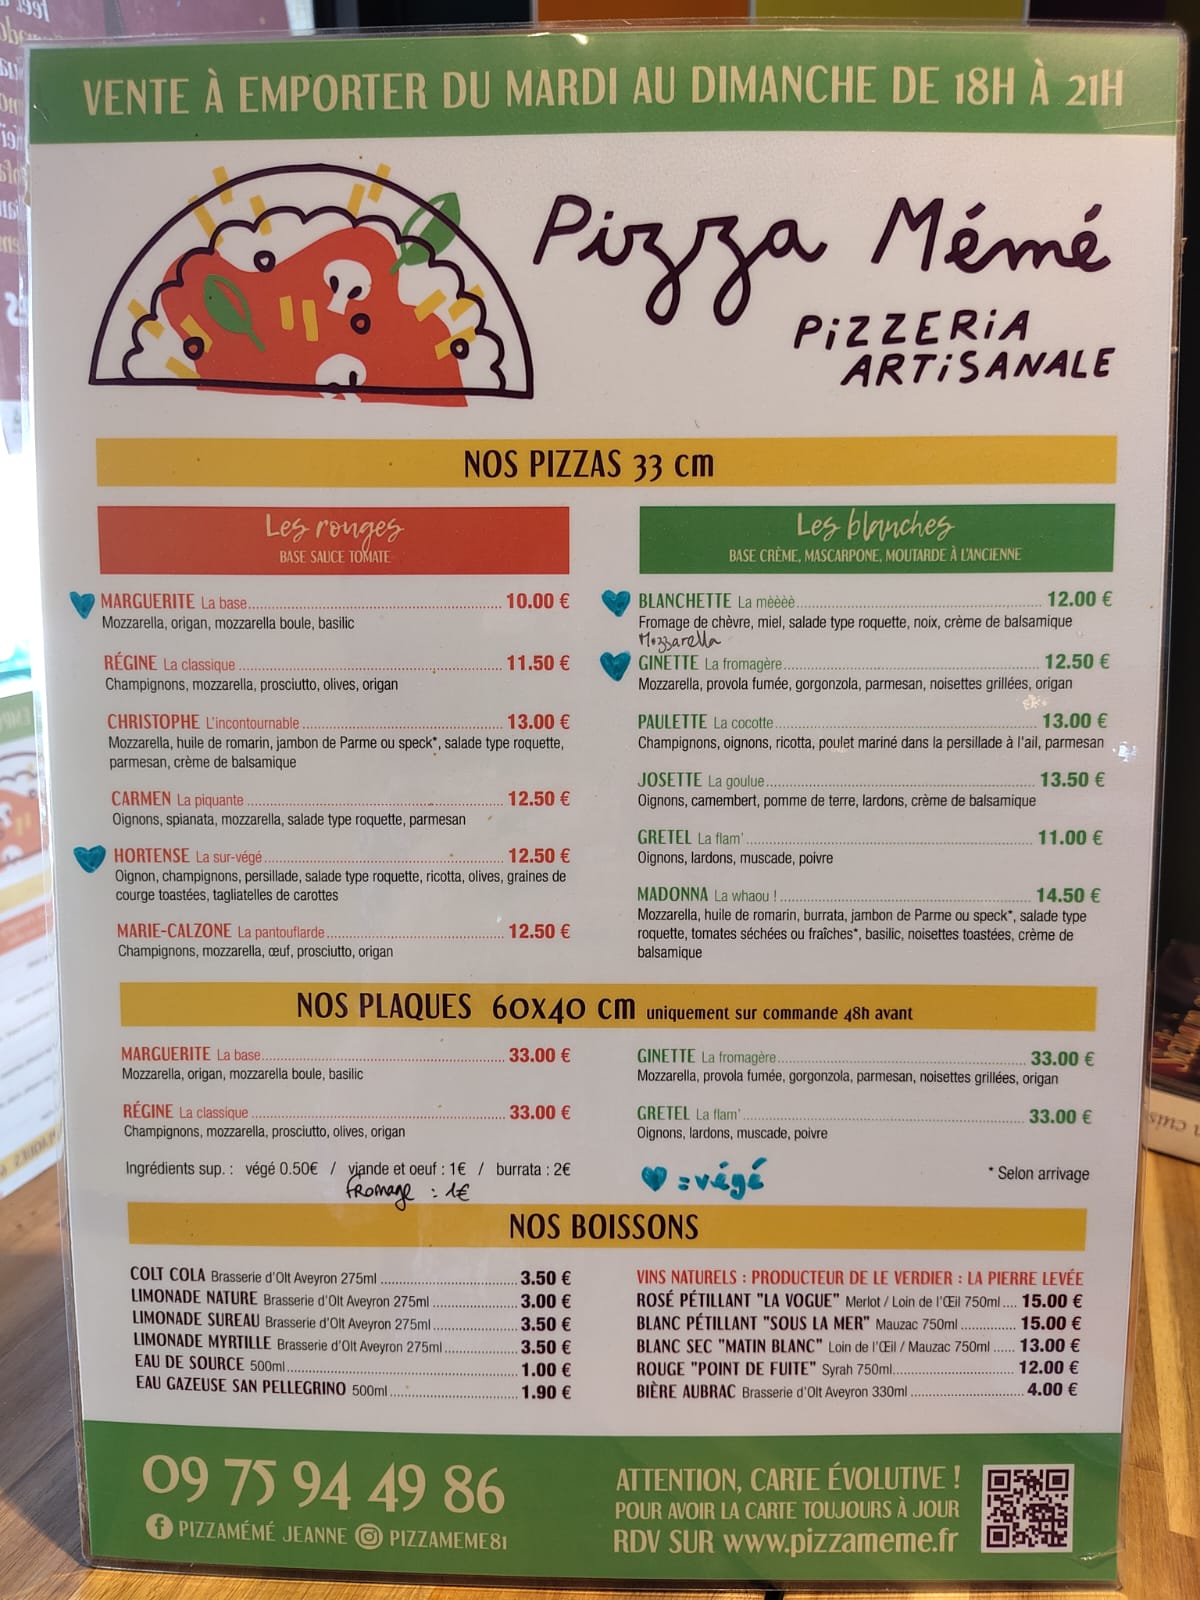 VENTE À EMPORTER DU MARDI AU DIMANCHE DE 18H À 21H
Pizza Mémé
PiZZERiA
ARTiSANALE
NOS PIZZAS 33 cm
Les rouges
BASE SAUCE TOMATE
MARGUERITE La base 10.00 €
Mozzarella, origan, mozzarella boule, basilic
RÉGINE La classique 11.50 €
Champignons, mozzarella, prosciutto, olives, origan
CHRISTOPHE L'incontournable 13.00 €
Mozzarella, huile de romarin, jambon de Parme ou speck*, salade type roquette,
parmesan, crème de balsamique
CARMEN La piquante 12.50 €
Oignons, spianata, mozzarella, salade type roquette, parmesan
HORTENSE La sur-végé 12.50 €
Oignon, champignons, persillade, salade type roquette, ricotta, olives, graines de
courge toastées, tagliatelles de carottes
MARIE-CALZONE La pantouflarde 12.50 €
Champignons, mozzarella, œuf, prosciutto, origan
Les blanches
BASE CRÈME, MASCARPONE, MOUTARDE À L'ANCIENNE
BLANCHETTE La mèèèè 12.00 €
Fromage de chèvre, miel, salade type roquette, noix, crème de balsamique
Mozzarella
GINETTE La fromagère 12.50 €
Mozzarella, provola fumée, gorgonzola, parmesan, noisettes grillées, origan
PAULETTE La cocotte 13.00 €
Champignons, oignons, ricotta, poulet mariné dans la persillade à l'ail, parmesan
JOSETTE La goulue 13.50 €
Oignons, camembert, pomme de terre, lardons, crème de balsamique
GRETEL La flam' 11.00 €
Oignons, lardons, muscade, poivre
MADONNA La whaou ! 14.50 €
Mozzarella, huile de romarin, burrata, jambon de Parme ou speck*, salade type
roquette, tomates séchées ou fraîches*, basilic, noisettes toastées, crème de
balsamique
NOS PLAQUES 60X40 cm uniquement sur commande 48h avant
MARGUERITE La base 33.00 €
Mozzarella, origan, mozzarella boule, basilic
RÉGINE La classique 33.00 €
Champignons, mozzarella, prosciutto, olives, origan
GINETTE La fromagère 33.00 €
Mozzarella, provola fumée, gorgonzola, parmesan, noisettes grillées, origan
GRETEL La flam' 33.00 €
Oignons, lardons, muscade, poivre
Ingrédients sup. : végé 0.50€ / viande et oeuf : 1€ / burrata : 2€
fromage : 1€
= végé
* Selon arrivage
NOS BOISSONS
COLT COLA Brasserie d'Olt Aveyron 275ml 3.50 €
LIMONADE NATURE Brasserie d'Olt Aveyron 275ml 3.00 €
LIMONADE SUREAU Brasserie d'Olt Aveyron 275ml 3.50 €
LIMONADE MYRTILLE Brasserie d'Olt Aveyron 275ml 3.50 €
EAU DE SOURCE 500ml 1.00 €
EAU GAZEUSE SAN PELLEGRINO 500ml 1.90 €
VINS NATURELS : PRODUCTEUR DE LE VERDIER : LA PIERRE LEVÉE
ROSÉ PÉTILLANT "LA VOGUE" Merlot / Loin de l'Œil 750ml 15.00 €
BLANC PÉTILLANT "SOUS LA MER" Mauzac 750ml 15.00 €
BLANC SEC "MATIN BLANC" Loin de l'Œil / Mauzac 750ml 13.00 €
ROUGE "POINT DE FUITE" Syrah 750ml 12.00 €
BIÈRE AUBRAC Brasserie d'Olt Aveyron 330ml 4.00 €
09 75 94 49 86
PIZZAMÉMÉ JEANNE PIZZAMEME81
ATTENTION, CARTE ÉVOLUTIVE !
POUR AVOIR LA CARTE TOUJOURS À JOUR
RDV SUR www.pizzameme.fr